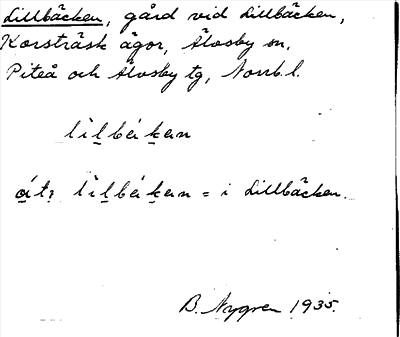 Lillbäcken, gård vid Lillbäcken,
Korsträsk ägor, Älvsby sn,
Piteå och Älvsby tg, Norrb. l.
lìlbékan
át, lìlbékan = i Lillbäcken.
B. Nygren 1935.